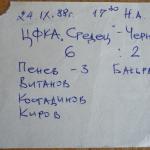 24.IX.88г. 17⁰⁰ Н.А.
ЦФКА "Средец" - Черн
6 : 2
Пенев - 3
Витанов
Костадинов
Киров